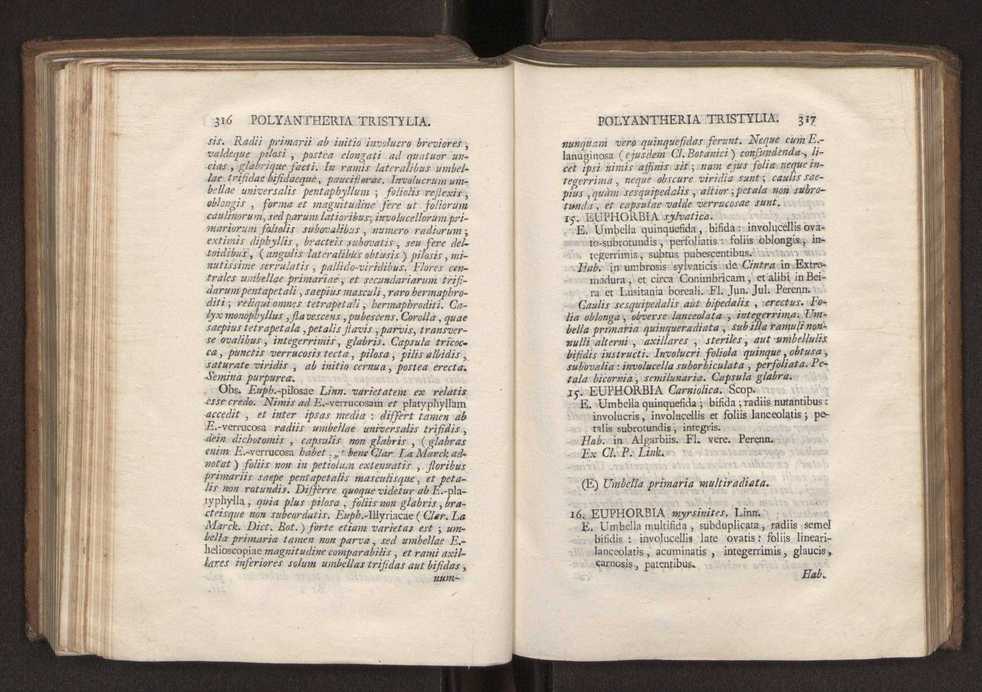 316 POLYANTHERIA TRISTYLIA.
sis. Radii primarii ab initio involucro breviores,
valdeque pilosi, postea elongati ad quatuor un-
cias, glabrique facti. In ramis lateralibus umbel-
lae trifidae bifidaeque, pauciflorae. Involucrum um-
bellae universalis pentaphyllum; foliolis reflexis,
oblongis, forma et magnitudine fere ut foliorum
caulinorum, sed parum latioribus; involucellorum pri-
mariorum foliolis subovalibus, numero radiorum;
extimis diphyllis, bracteis subovatis, seu fere del-
toidibus, (angulis lateralibus obtusis) pilosis, mi-
nutissime serrulatis, pallido-viridibus. Flores cen-
trales umbellae primariae, et secundariarum trifi-
darum pentapetali, saepius masculi, raro hermaphro-
diti; reliqui omnes tetrapetali, hermaphroditi. Ca-
lyx monophyllus, flavescens, pubescens. Corolla, quae
saepius tetrapetala, petalis flavis, parvis, transver-
se ovalibus, integerrimis, glabris. Capsula tricoc-
ca, punctis verrucosis tecta, pilosa, pilis albidis,
saturate viridis, ab initio cernua, postea erecta.
Semina purpurea.
Obs. Euph.-pilosae Linn. varietatem ex relatis
esse credo. Nimis ad E.-verrucosam et platyphyllam
accedit, et inter ipsas media: differt tamen ab
E.-verrucosa radiis umbellae universalis trifidis,
dein dichotomis, capsulis non glabris, (glabras
enim E.-verrucosa habet, bene Clar. La Marck ad-
notat) foliis non in petiolum extenuatis, floribus
primariis saepe pentapetalis masculisque, et peta-
lis non rotundis. Differre quoque videtur ab E.-pla-
typhylla, quia plus pilosa, foliis non glabris, bra-
cteisque non subcordatis. Euph.-Illyriacae (Clar. La
Marck. Dict. Bot.) forte etiam varietas est; um-
bella primaria tamen non parva, sed umbellae E.-
helioscopiae magnitudine comparabilis, et rami axil-
lares inferiores solum umbellas trifidas aut bifidas,
num-
POLYANTHERIA TRISTYLIA. 317
nunquam vero quinquefidas ferunt. Neque cum E.-
lanuginosa (ejusdem Cl. Botanici) confundenda, li-
cet ipsi nimis affinis sit; nam ejus folia neque in-
tegerrima, neque obscure viridia sunt; caulis sae-
pius, quam sesquipedalis, altior; petala non subro-
tunda, et capsulae valde verrucosae sunt.
15. EUPHORBIA sylvatica.
E. Umbella quinquefida, bifida: involucellis ova-
to-subrotundis, perfoliatis: foliis oblongis, in-
tegerrimis, subtus pubescentibus.
Hab. in umbrosis sylvaticis de Cintra in Extre-
madura, et circa Conimbricam, et alibi in Bei-
ra et Lusitania boreali. Fl. Jun. Jul. Perenn.
Caulis sesquipedalis aut bipedalis, erectus. Fo-
lia oblonga, obverse lanceolata, integerrima. Um-
bella primaria quinqueradiata, sub illa ramuli non-
nulli alterni, axillares, steriles, aut umbellulis
bifidis instructi. Involucri foliola quinque, obtusa,
subovalia: involucella suborbiculata, perfoliata. Pe-
tala bicornia, semilunaria. Capsula glabra.
15. EUPHORBIA Carniolica. Scop.
E. Umbella quinquefida; bifida; radiis nutantibus:
involucris, involucellis et foliis lanceolatis; pe-
talis subrotundis, integris.
Hab. in Algarbiis. Fl. vere. Perenn.
Ex Cl. P. Link.
(E) Umbella primaria multiradiata.
16. EUPHORBIA myrsinites. Linn.
E. Umbella multifida, subduplicata, radiis semel
bifidis: involucellis late ovatis: foliis lineari-
lanceolatis, acuminatis, integerrimis, glaucis,
carnosis, patentibus.
Hab.